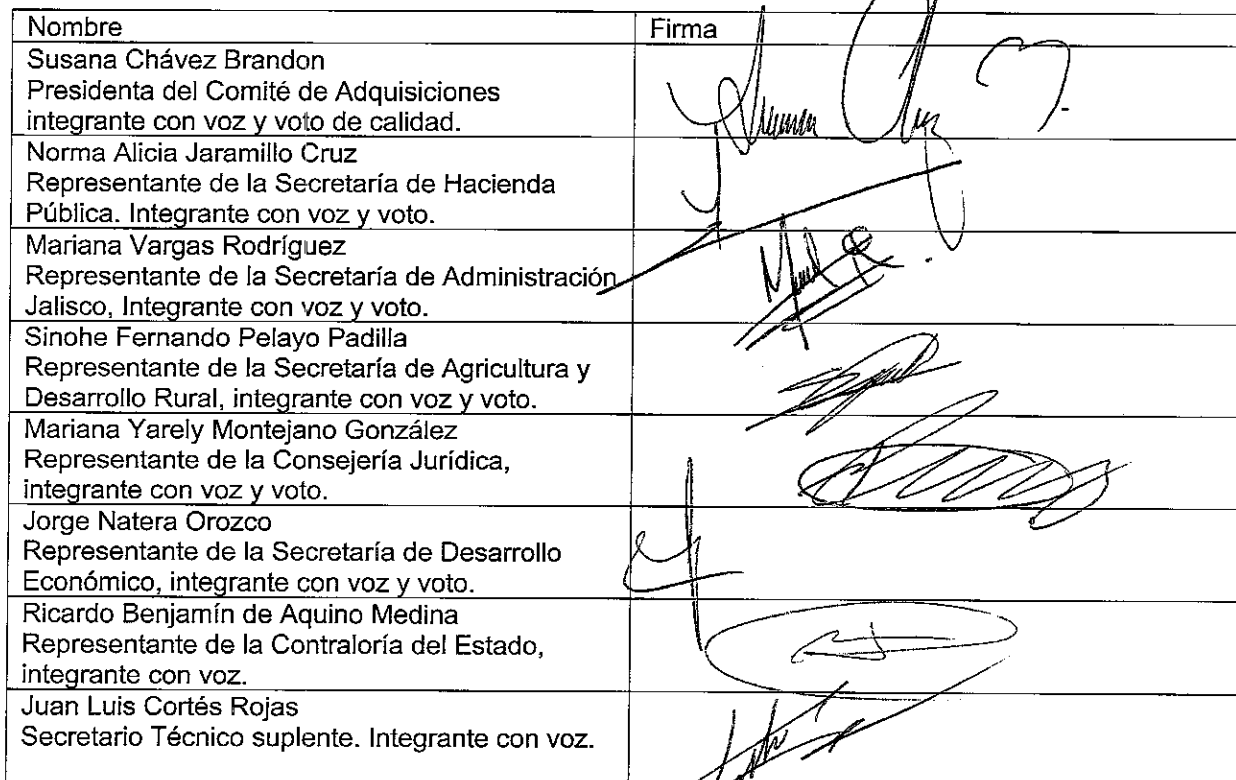 Nombre
Firma
Susana Chávez Brandon
Presidenta del Comité de Adquisiciones
integrante con voz y voto de calidad.
Norma Alicia Jaramillo Cruz
Representante de la Secretaría de Hacienda
Pública. Integrante con voz y voto.
Mariana Vargas Rodríguez
Representante de la Secretaría de Administración
Jalisco, Integrante con voz y voto.
Sinohe Fernando Pelayo Padilla
Representante de la Secretaría de Agricultura y
Desarrollo Rural, integrante con voz y voto.
Mariana Yarely Montejano González
Representante de la Consejería Jurídica,
integrante con voz y voto.
Jorge Natera Orozco
Representante de la Secretaría de Desarrollo
Económico, integrante con voz y voto.
Ricardo Benjamín de Aquino Medina
Representante de la Contraloría del Estado,
integrante con voz.
Juan Luis Cortés Rojas
Secretario Técnico suplente. Integrante con voz.